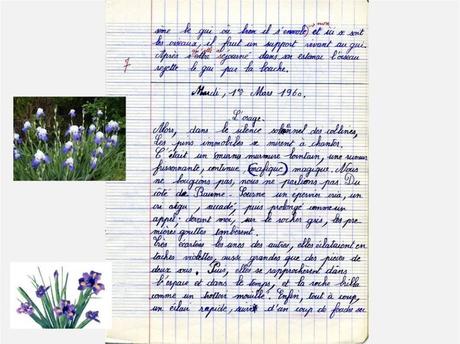 sème le gui où bien il s'envole, et si ce sont
les oiseaux, il faut un support vivant au gui.
Après séjourné dans son estomac l'oiseau
rejette le gui par la bouche.
7
Mardi, Mars 1960.
L'orage.
Alors, dans le silence solennel des collines,
Les pins immobiles se mirent à chanter.
C'était un murmure lointain, une rumeur
frissonnante, continue (mafique) magique. Nous
ne bougions pas, nous ne parlions pas. Du
côté de Baume. Sourne un épervier cria, un
cri aigu, saccadé, puis prolongé comme un
appel; devant moi, sur le rocher gris, les pre-
mières gouttes tombèrent.
Très écartées les unes des autres, elles éclataient en
taches violettes, aussi grandes que des pièces de
deux sous. Puis, elles se rapprochèrent dans
l'espace et dans le temps, et la roche brilla
comme un trottoir mouillé. Enfin, tout à coup,
un éclair rapide, suivi d'un coup de foudre sec